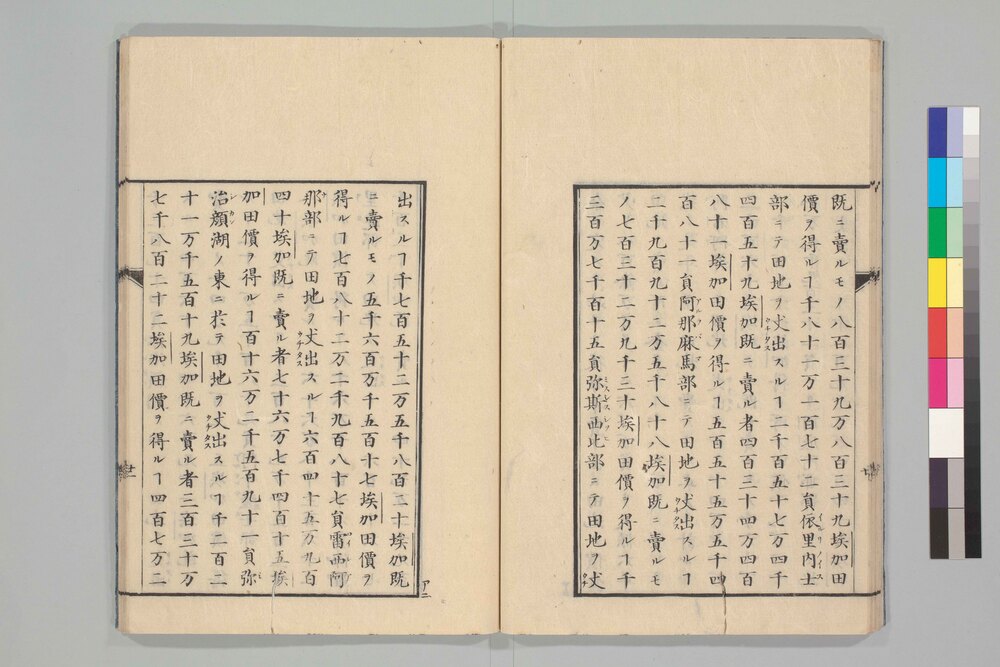 既ニ賣ルモノ八百三十九万八百三十九埃加田
價ヲ得ルヿ千八十一万一百七十二負依里内士
部ニテ田地ヲ丈出スルヿ二千百五十七万四千
四百五十九埃加既ニ賣ル者四百三十四万四百
八十一埃加田價ヲ得ルヿ五百五十五万五千四
百八十一負阿那麻馬部ニテ田地ヲ丈出スルヿ
二千九百九十二万五千八十八埃加既ニ賣ルモ
ノ七百三十二万九千三十埃加田價ヲ得ルヿ千
三百万七千百十五負弥斯西比部ニテ田地ヲ丈
出スルヿ千七百五十二万五千八百二十埃加既
ニ賣ルモノ五千六百万千五百十七埃加田價ヲ
得ルヿ七百八十二万二千九百八十七負雷西阿
那部ニテ田地ヲ丈出スルヿ六百四十五万九百
四十埃加既ニ賣ル者七十六万七千四百十五埃
加田價ヲ得ルヿ百十六万二千五百九十一負弥
治顔湖ノ東ニ於テ田地ヲ丈出スルヿ千二百二
十一万千五百十九埃加既ニ賣ル者三百三十万
七千八百二十二埃加田價ヲ得ルヿ四百七万二